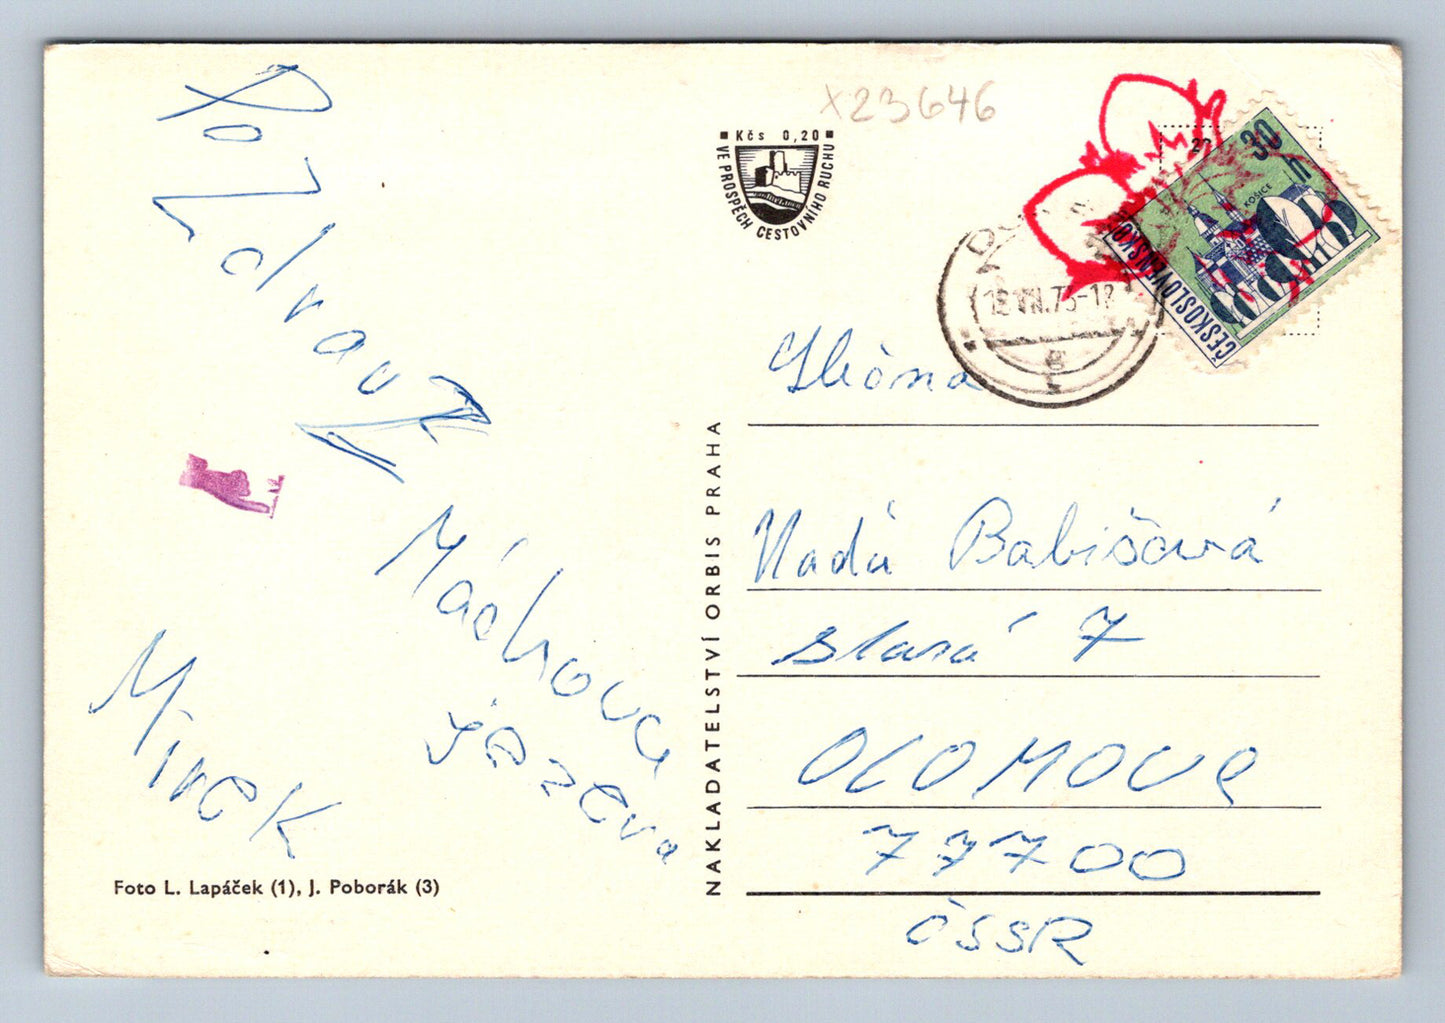 x23646
Kčs 0,20
VE PROSPĚCH CESTOVNÍHO RUCHU
30 h
KOŠICE
ČESKOSLOVENSKO
Pozdrav z
Máchova
jezera
Mirek
Foto L. Lapáček (1), J. Poborák (3)
NAKLADATELSTVÍ ORBIS PRAHA
Naďa Babišová
7
OLOMOUC
77700
ČSSR